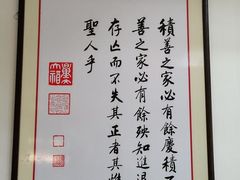 積善之家必有餘慶積不
善之家必有餘殃知進退
存亡而不失其正者其惟
聖人乎